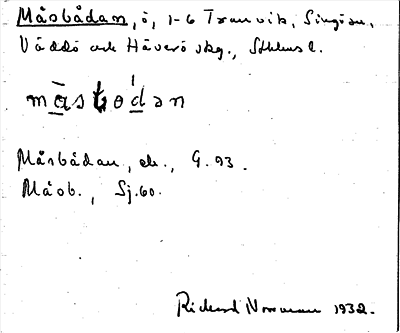 Måsbådan, ö, 1-6 Tranvik, Singö sn,
Väddö och Häverö skg., Sthlms l.
māsbodan
Måsbådan, ek., G. 93.
Måsb., Sj. 60.
Rickard Norrman 1932.